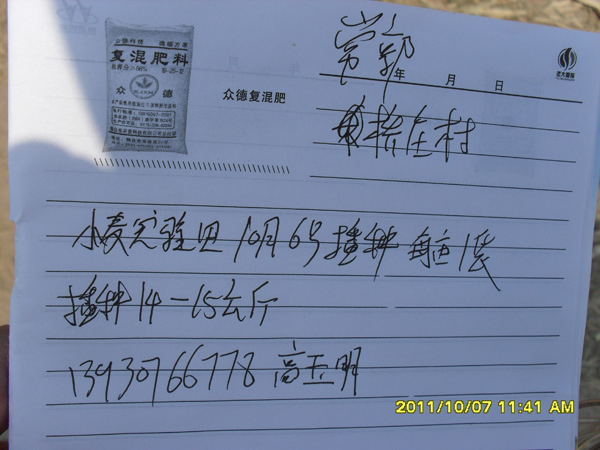 众德科技 造福万家
复混肥料
众 德
众德复混肥
常郭
年 月 日
桥庄村
小麦实验田 10月6号播种 每亩1袋
播种14-15公斤
13930766778 高玉明
2011/10/07 11:41 AM